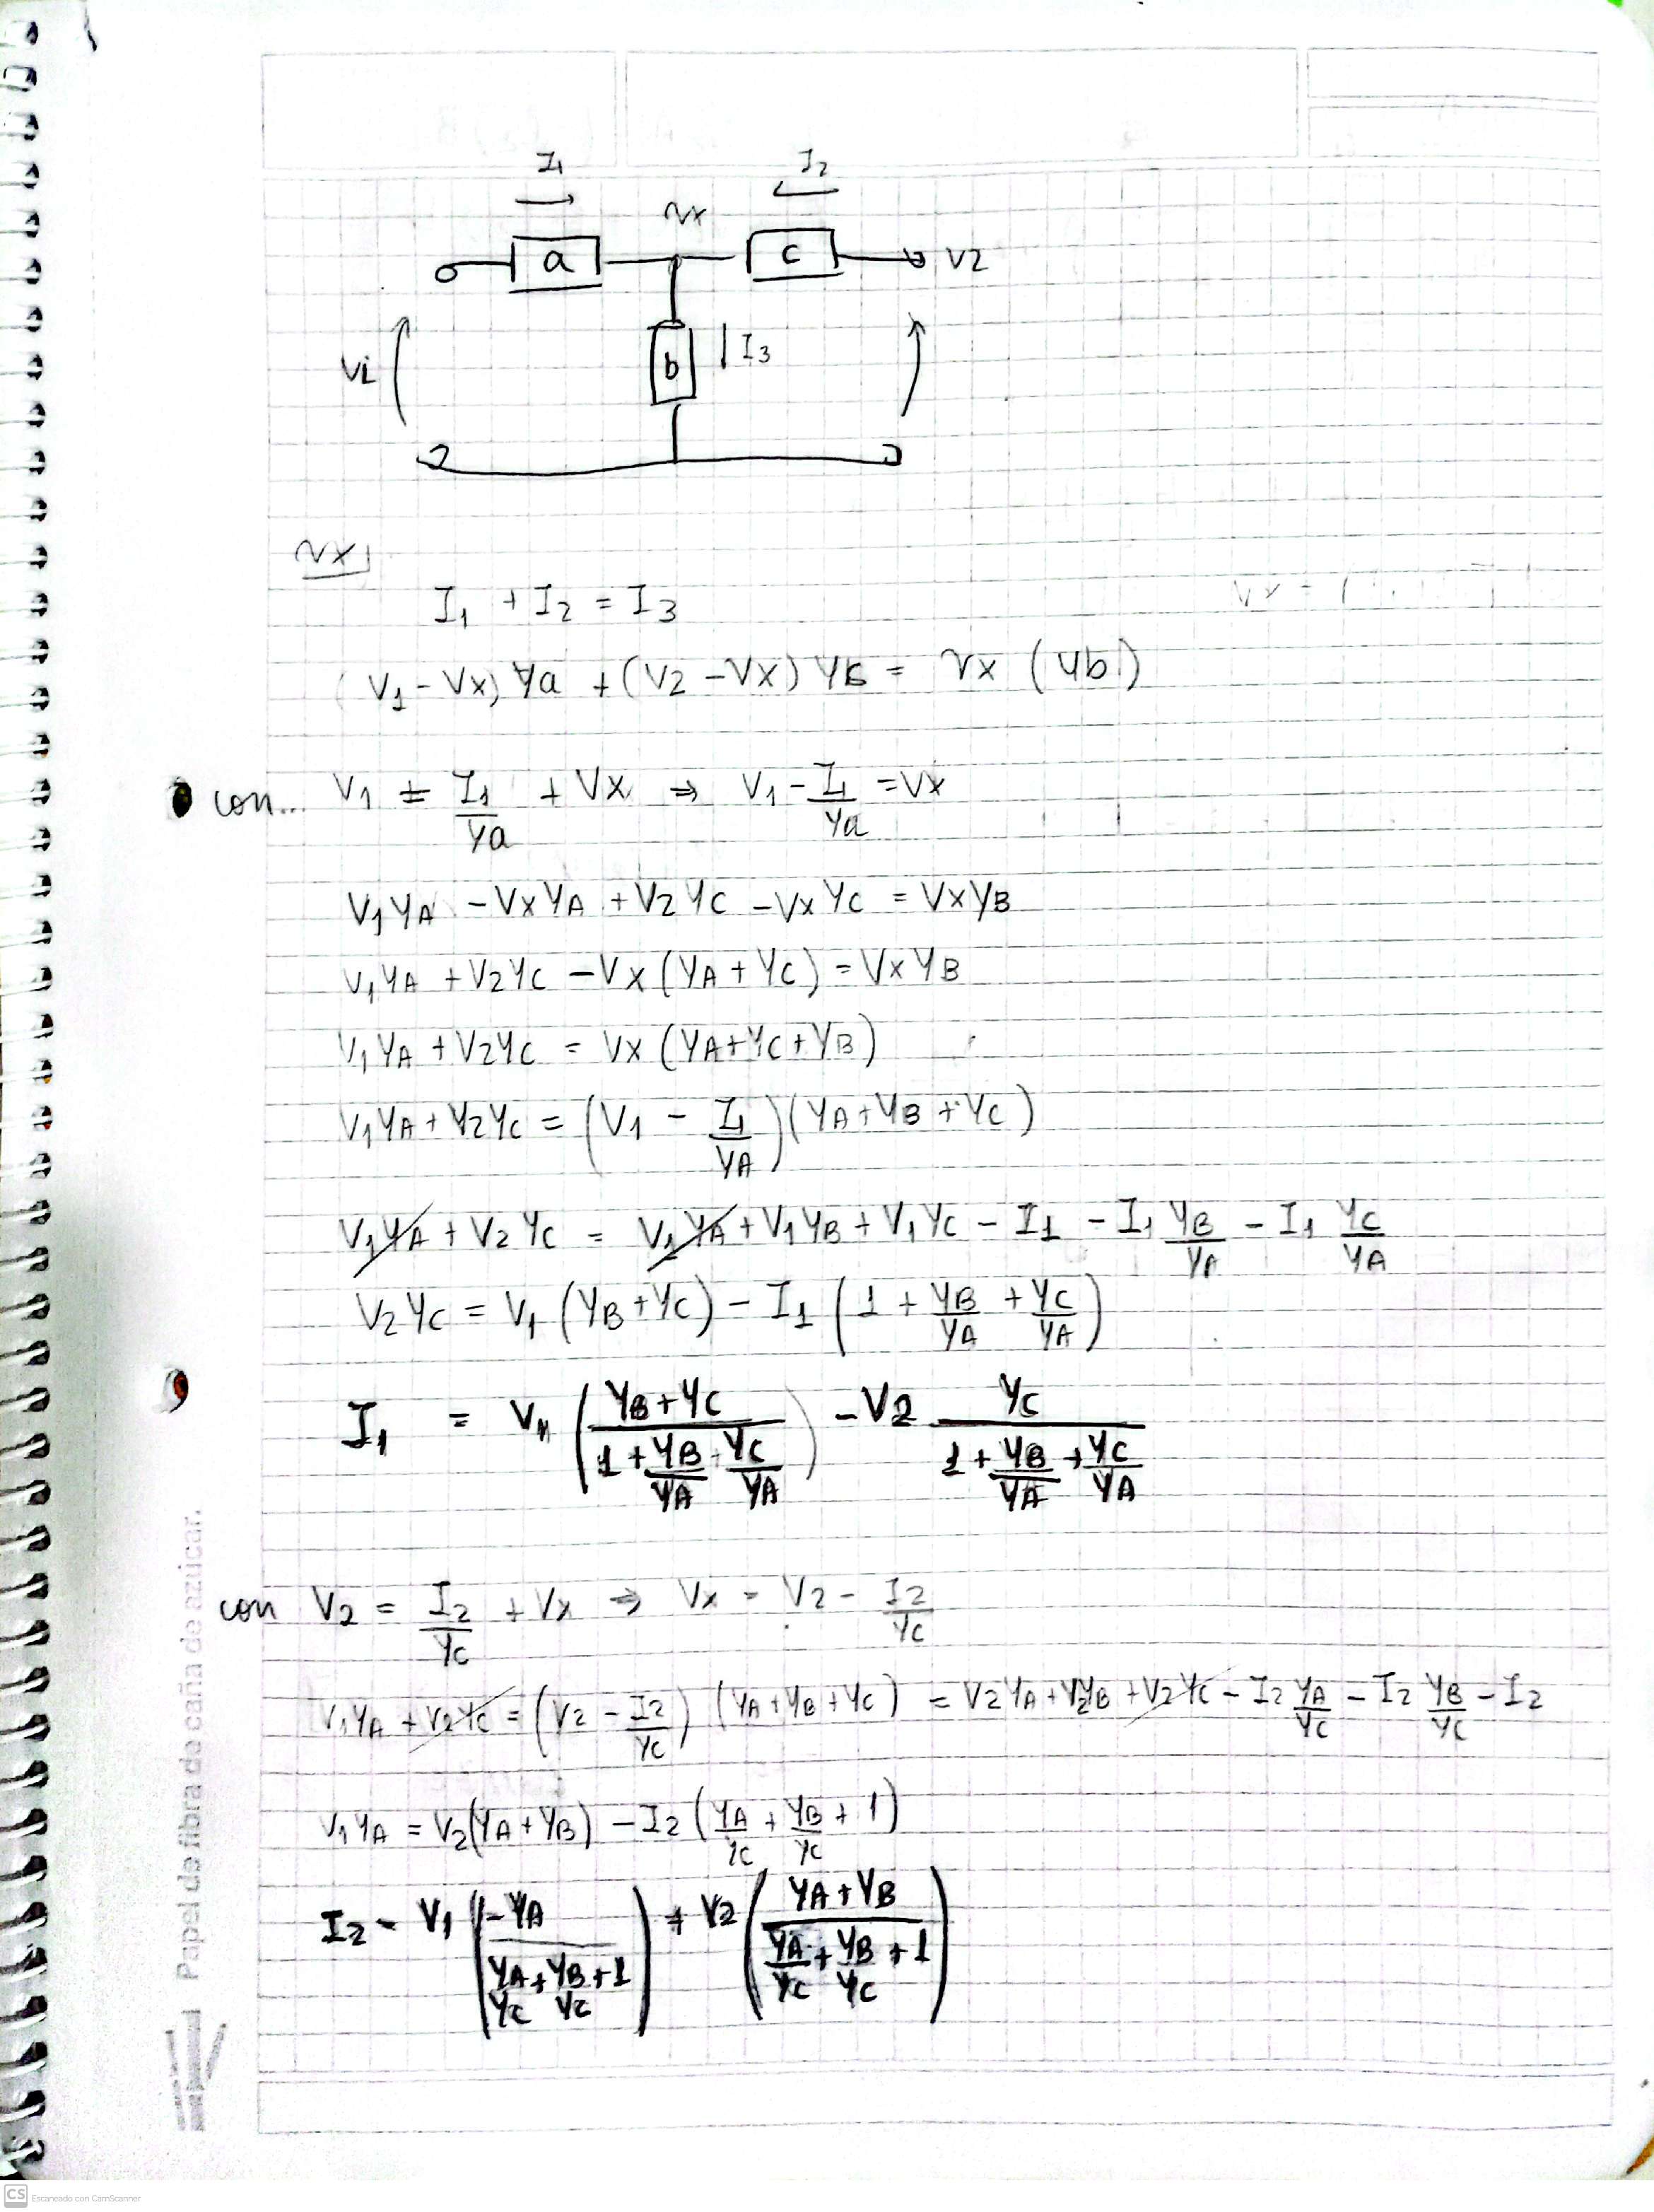 I1 I2
Vx
a c V2
Vi b I3
Vx
I1 + I2 = I3
(V1 - Vx) Ya + (V2 - Vx) Yb = Vx (Yb)
con... V1 = I1/Ya + Vx ⇒ V1 - I1/Ya = Vx
V1 YA - Vx YA + V2 YC - Vx YC = Vx YB
V1 YA + V2 YC - Vx (YA + YC) = Vx YB
V1 YA + V2 YC = Vx (YA + YC + YB)
V1 YA + V2 YC = (V1 - I1/YA) (YA + YB + YC)
V1 YA + V2 YC = V1 YA + V1 YB + V1 YC - I1 - I1 YB/YA - I1 YC/YA
V2 YC = V1 (YB + YC) - I1 (1 + YB/YA + YC/YA)
I1 = V1 ((YB + YC)/(1 + YB/YA + YC/YA)) - V2 YC/(1 + YB/YA + YC/YA)
con V2 = I2/YC + Vx ⇒ Vx = V2 - I2/YC
V1 YA + V2 YC = (V2 - I2/YC) (YA + YB + YC) = V2 YA + V2 YB + V2 YC - I2 YA/YC - I2 YB/YC - I2
V1 YA = V2 (YA + YB) - I2 (YA/YC + YB/YC + 1)
I2 = V1 (-YA/(YA/YC + YB/YC + 1)) + V2 ((YA + YB)/(YA/YC + YB/YC + 1))
Papel de fibra de caña de azúcar.
CS Escaneado con CamScanner